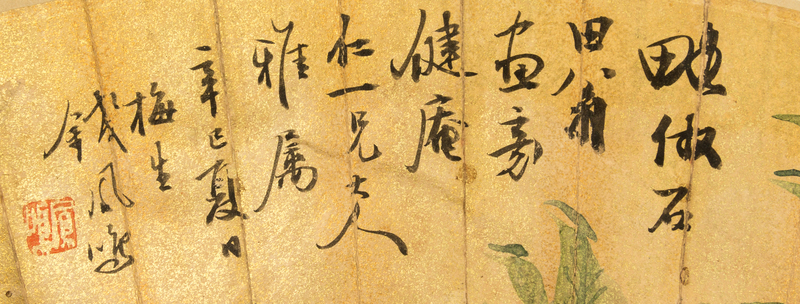 略倣石
田翁
画意
健庵
仁一兄大人
雅属
辛巳夏日
梅生
錢鳳鳴